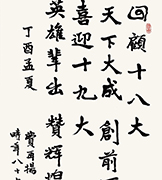 回顾十八大
天下大成 創前
喜迎十九大
英雄辈出 贊輝煌
丁酉孟夏
費再揚
時年八十